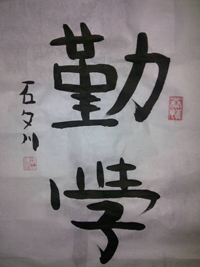 勤学
石夕川